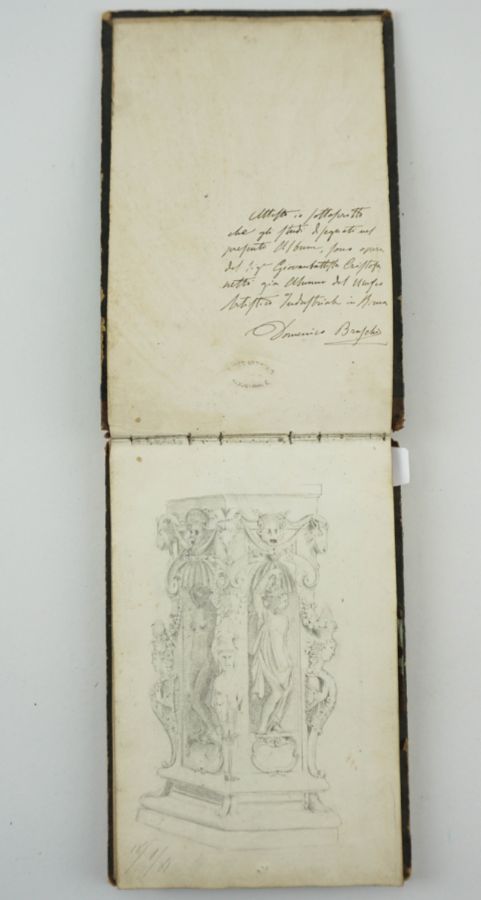 Attesto io sottoscritto
che gli studi disegnati nel
presente Album, sono opera
del Sigr Giovanbattista Cristofa
netti già Alunno del Museo
Artistico Industriale in Roma
Domenico Bruschi